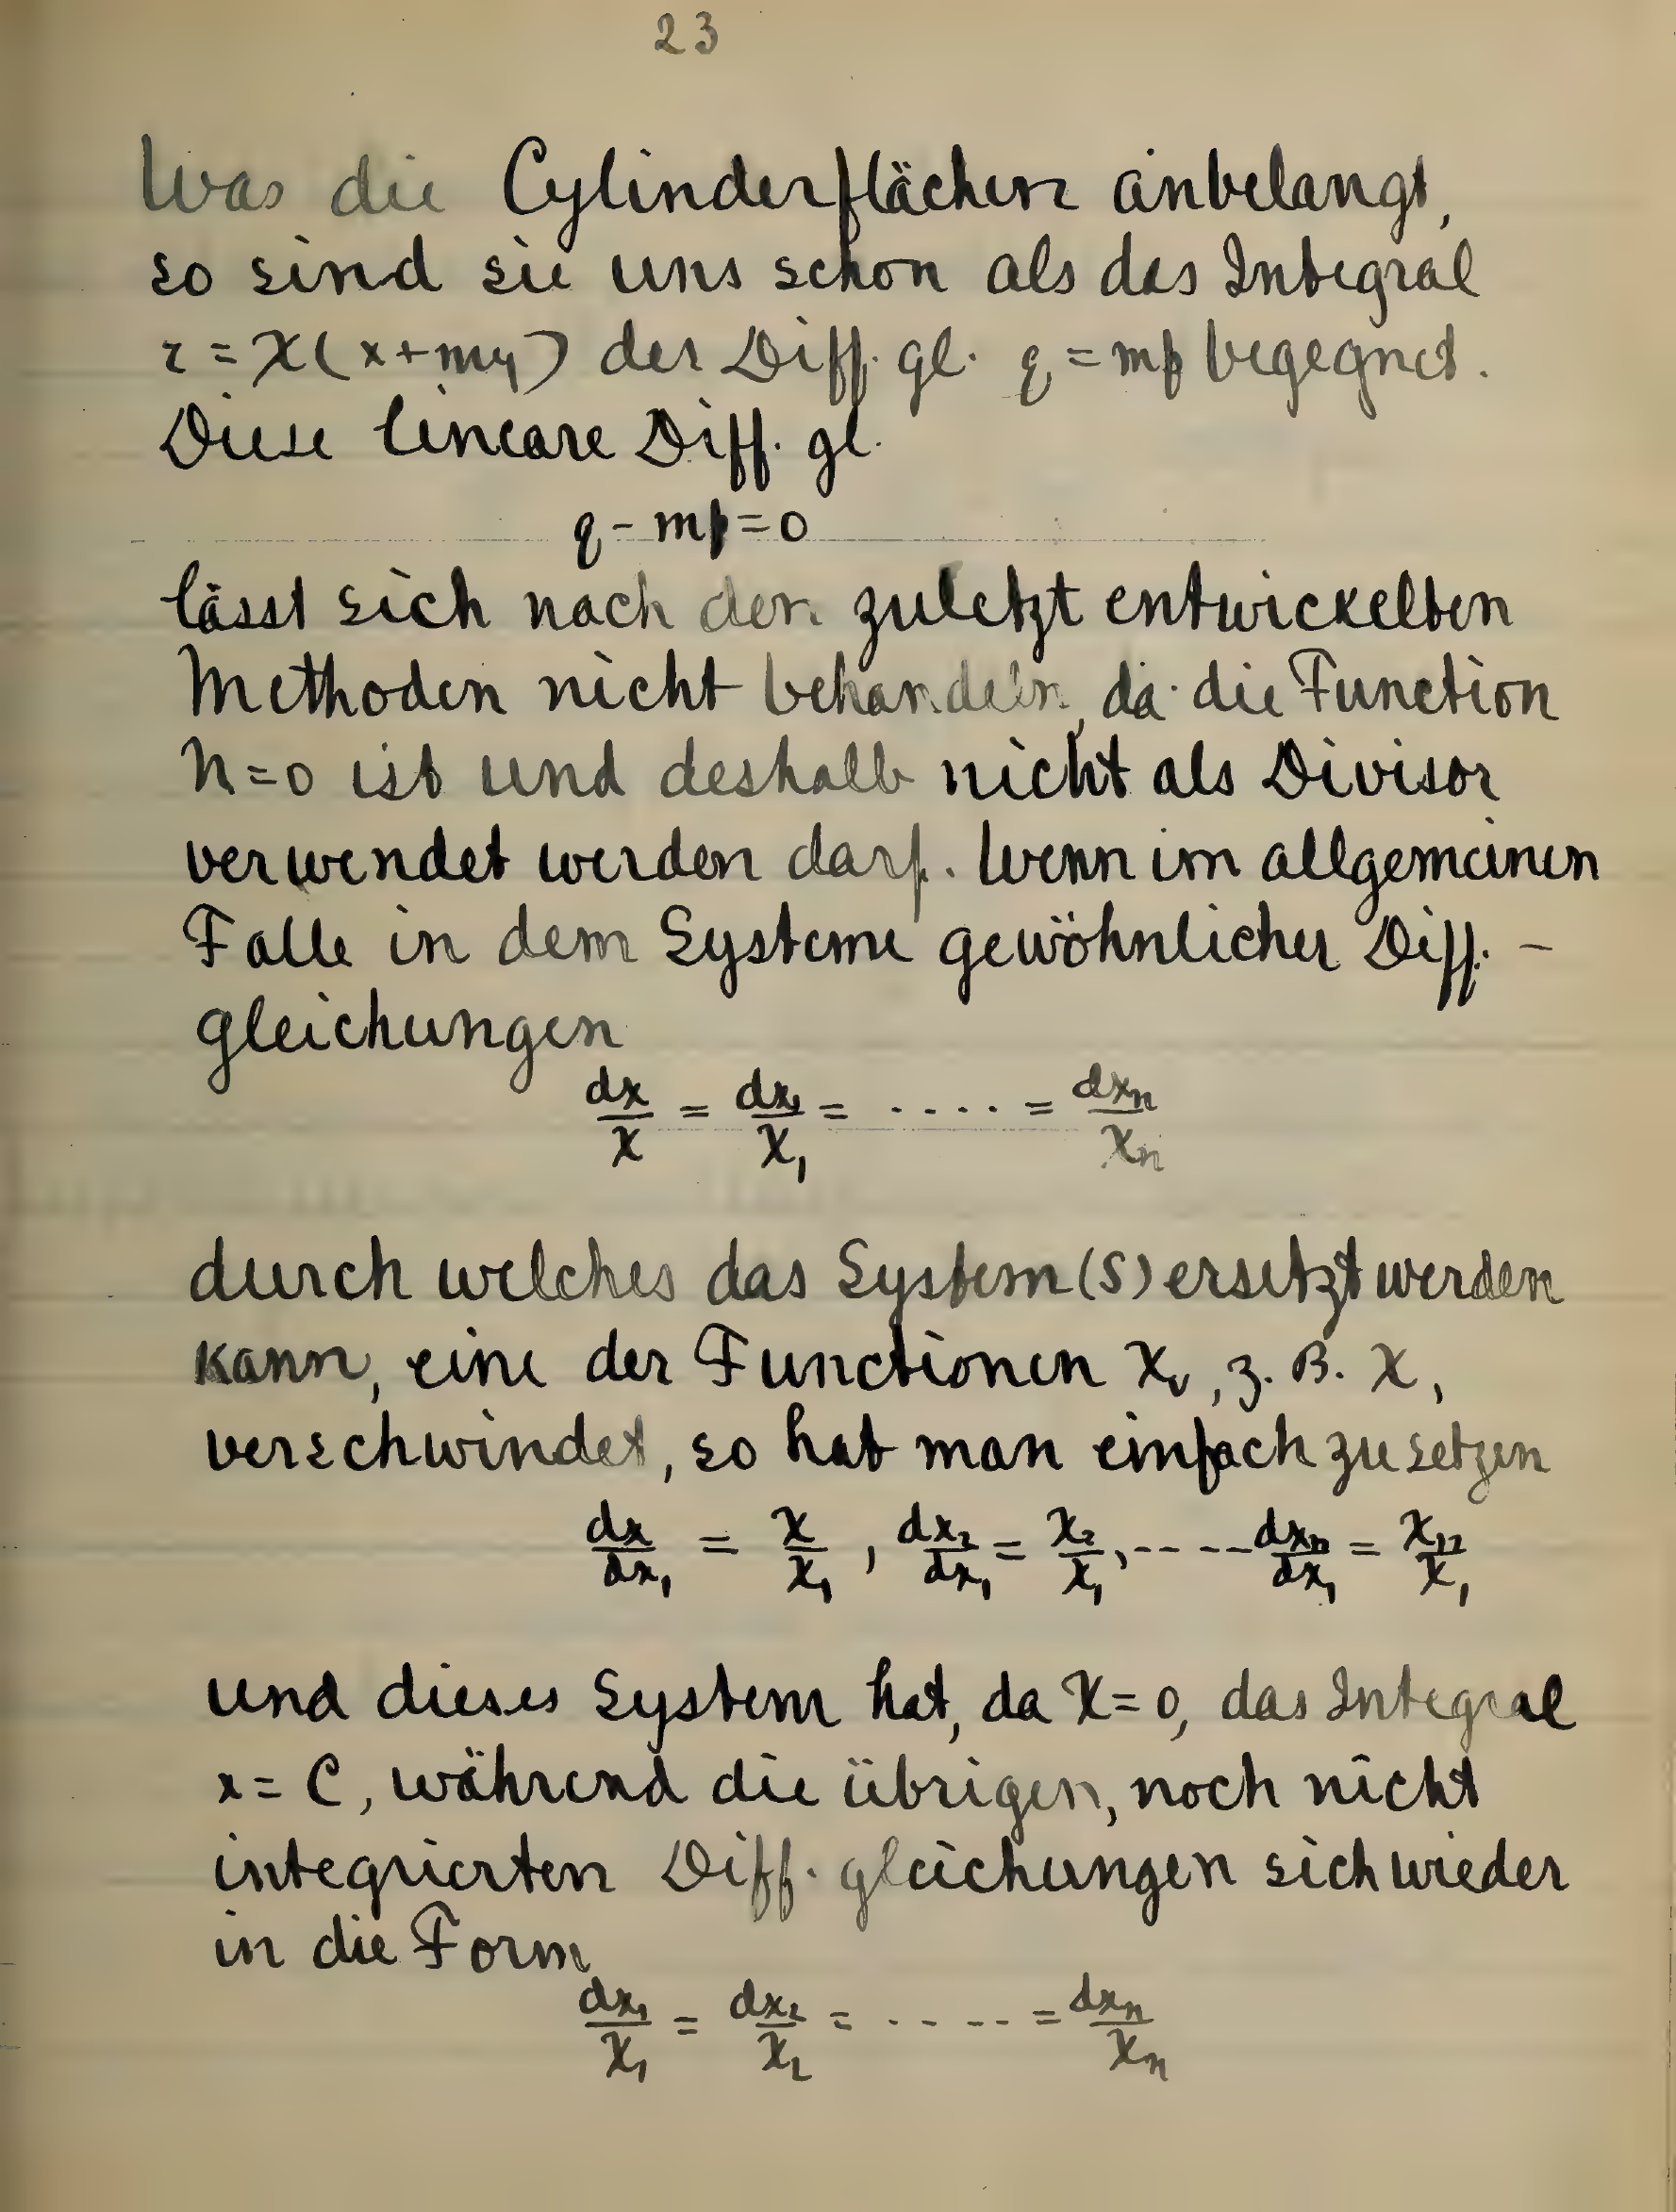 23
Was die Cylinderflächen anbelangt,
so sind sie uns schon als das Integral
z = χ(x+my) der Diff. gl. q = mp begegnet.
Diese lineare Diff. gl.
q - mp = 0
lässt sich nach den zuletzt entwickelten
Methoden nicht behandeln, da die Function
n = 0 ist und deshalb nicht als Divisor
verwendet werden darf. Wenn im allgemeinen
Falle in dem Systeme gewöhnlicher Diff. -
gleichungen
dx/X = dx₁/X₁ = .... = dxₙ/Xₙ
durch welches das System (S) ersetzt werden
kann, eine der Functionen Xᵥ, z. B. X,
verschwindet, so hat man einfach zu setzen
dx/dx₁ = X/X₁, dx₂/dx₁ = X₂/X₁, ---- dxₙ/dx₁ = Xₙ/X₁
und dieses System hat, da X = 0, das Integral
x = C, während die übrigen, noch nicht
integrierten Diff. gleichungen sich wieder
in die Form
dx₁/X₁ = dx₂/X₂ = ..... = dxₙ/Xₙ